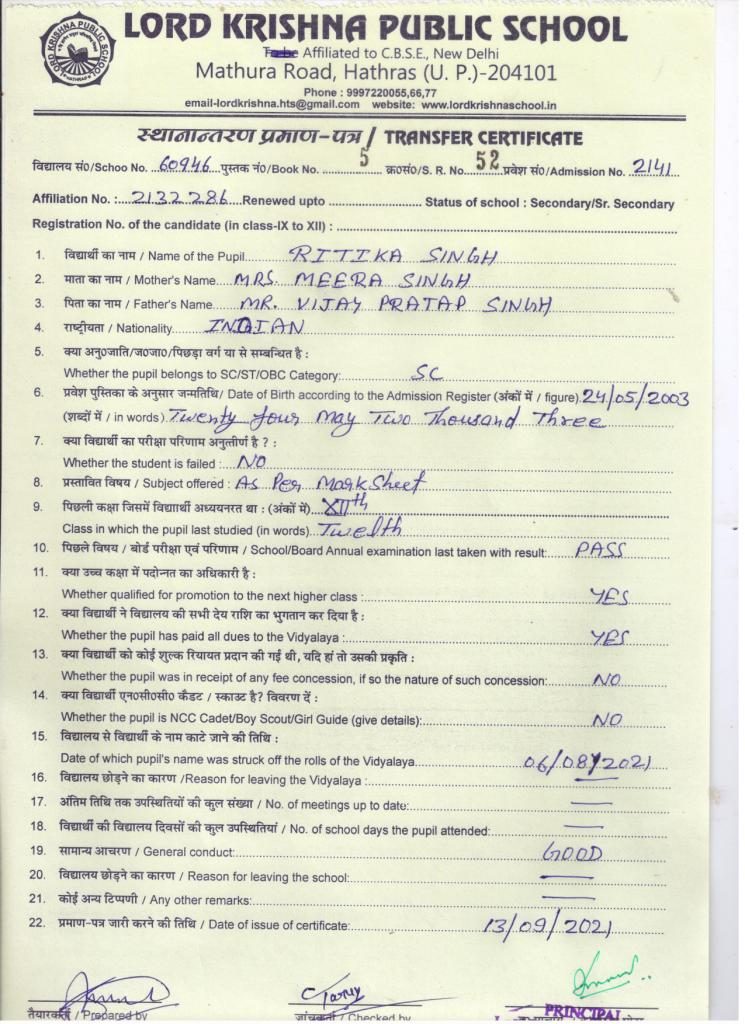 LORD KRISHNA PUBLIC SCHOOL
To be Affiliated to C.B.S.E., New Delhi
Mathura Road, Hathras (U. P.)-204101
Phone : 9997220055,66,77
email-lordkrishna.hts@gmail.com website: www.lordkrishnaschool.in
स्थानान्तरण प्रमाण-पत्र / TRANSFER CERTIFICATE
विद्यालय सं०/Schoo No. 60946 पुस्तक नं०/Book No. 5 क्र०सं०/S. R. No. 52 प्रवेश सं०/Admission No. 2141
Affiliation No. : 2132286 Renewed upto Status of school : Secondary/Sr. Secondary
Registration No. of the candidate (in class-IX to XII) :
1. विद्यार्थी का नाम / Name of the Pupil RITIKA SINGH
2. माता का नाम / Mother's Name MRS. MEERA SINGH
3. पिता का नाम / Father's Name MR. VIJAY PRATAP SINGH
4. राष्ट्रीयता / Nationality INDIAN
5. क्या अनु०जाति/ज०जा०/पिछड़ा वर्ग या से सम्बन्धित है :
Whether the pupil belongs to SC/ST/OBC Category: SC
6. प्रवेश पुस्तिका के अनुसार जन्मतिथि/ Date of Birth according to the Admission Register (अंकों में / figure) 24/05/2003
(शब्दों में / in words) Twenty four May Two Thousand Three
7. क्या विद्यार्थी का परीक्षा परिणाम अनुत्तीर्ण है ? :
Whether the student is failed : NO
8. प्रस्तावित विषय / Subject offered : As Per MarkSheet
9. पिछली कक्षा जिसमें विद्याार्थी अध्ययनरत था : (अंकों में) XIIth
Class in which the pupil last studied (in words) Twelth
10. पिछले विषय / बोर्ड परीक्षा एवं परिणाम / School/Board Annual examination last taken with result: PASS
11. क्या उच्च कक्षा में पदोन्नत का अधिकारी है :
Whether qualified for promotion to the next higher class : YES
12. क्या विद्यार्थी ने विद्यालय की सभी देय राशि का भुगतान कर दिया है :
Whether the pupil has paid all dues to the Vidyalaya : YES
13. क्या विद्यार्थी को कोई शुल्क रियायत प्रदान की गई थी, यदि हां तो उसकी प्रकृति :
Whether the pupil was in receipt of any fee concession, if so the nature of such concession: NO
14. क्या विद्यार्थी एन०सी०सी० कैडट / स्काउट है? विवरण दें :
Whether the pupil is NCC Cadet/Boy Scout/Girl Guide (give details): NO
15. विद्यालय से विद्यार्थी के नाम काटे जाने की तिथि :
Date of which pupil's name was struck off the rolls of the Vidyalaya 06/08/2021
16. विद्यालय छोड़ने का कारण /Reason for leaving the Vidyalaya : —
17. अंतिम तिथि तक उपस्थितियों की कुल संख्या / No. of meetings up to date: —
18. विद्यार्थी की विद्यालय दिवसों की कुल उपस्थितियां / No. of school days the pupil attended: —
19. सामान्य आचरण / General conduct: GOOD
20. विद्यालय छोड़ने का कारण / Reason for leaving the school: —
21. कोई अन्य टिप्पणी / Any other remarks: —
22. प्रमाण-पत्र जारी करने की तिथि / Date of issue of certificate: 13/09/2021
तैयारकर्ता / Prepared by जांचकर्ता / Checked by PRINCIPAL